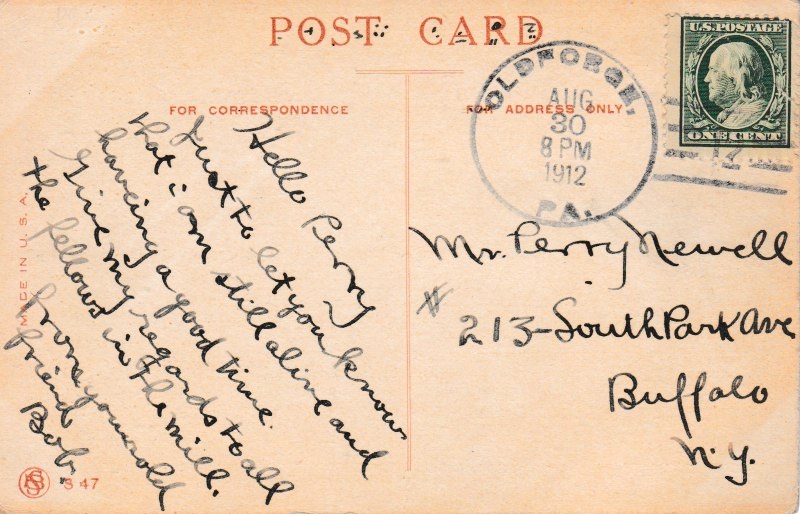 POST CARD
FOR CORRESPONDENCE
FOR ADDRESS ONLY
MADE IN U.S.A.
Hello Perry
Just to let you know
that i am still alive and
having a good time.
Give my regards to all
the fellows in the mill.
from your old
friend
Bob.
S 47
OLDFORGE,
AUG
30
8 PM
1912
PA.
U.S. POSTAGE
ONE CENT
12
Mr. Perry Newell
# 213-South Park Ave
Buffalo
N.Y.